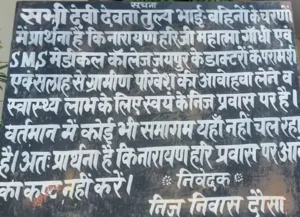 सूचना
सभी देवी देवता तुल्य भाई-बहिनों के चरणों
में प्रार्थना है कि नारायण हरि जी महात्मा गाँधी एवं
S.M.S मेडीकल कॉलेज जयपुर के डाक्टरों के परामर्श
एवं सलाह से ग्रामीण परिवेश की आवोहवा लेने व
स्वास्थ्य लाभ के लिए स्वयं के निज प्रवास पर है।
वर्तमान में कोई भी समागम यहाँ नहीं चल रहा
है। अतः प्रार्थना है कि नारायण हरि प्रवास पर आने
का नहीं करें।
निवेदक
निज निवास दौसा